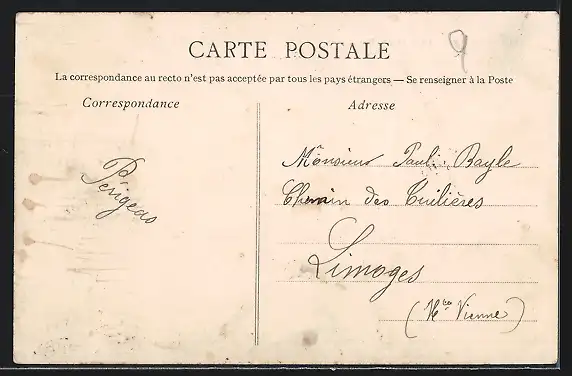 9
CARTE POSTALE
La correspondance au recto n'est pas acceptée par tous les pays étrangers — Se renseigner à la Poste
Correspondance
Adresse
Périgeas
Monsieur Paul Bayle
Chemin des Tuilières
Limoges
(Hte Vienne)